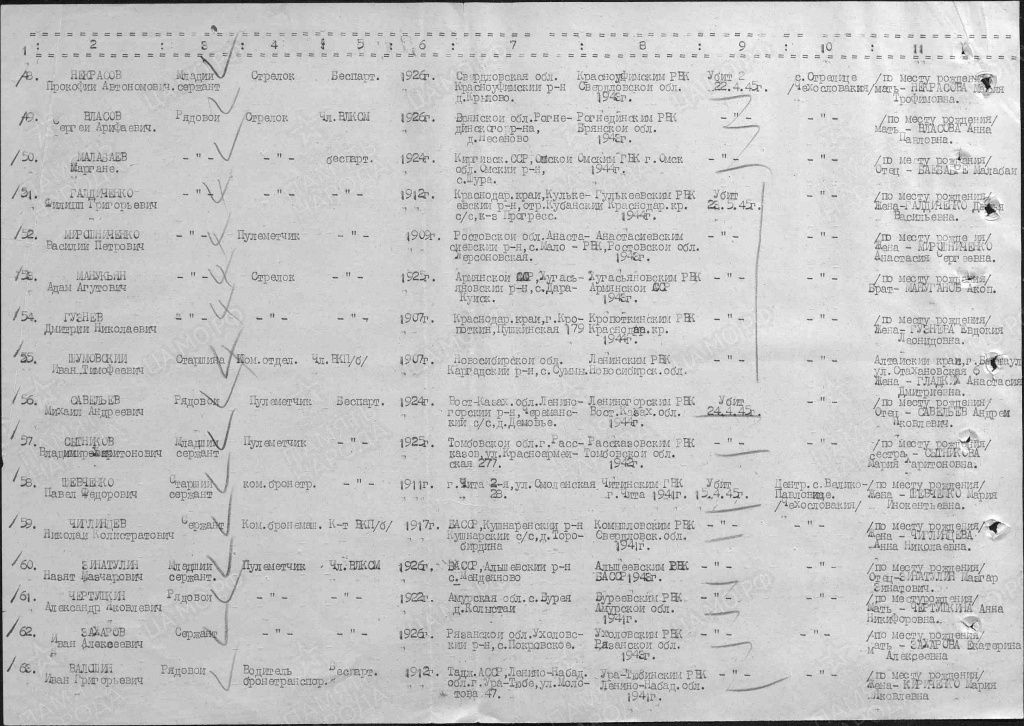 1 : 2 : 3 : 4 : 5 : 6 : 7 : 8 : 9 : 10 : 11
48. НЕКРАСОВ Младши Стрелок Беспарт. 1926г. Свердловская обл. Красноуфимским РВК Убит 2 с.Стрелице /по месту рождения/
Прокофий Автономович. сержант Красноуфимский р-н Свердловской обл. 22.4.45г. /Чехословакия/ мать- НЕКРАСОВА Мария
д.Крылово. 1943г. Трофимовна.
49. ВЛАСОВ Рядовой Стрелок Чл.ВЛКСМ 1926г. Брянской обл.Рогне- Рогнединским РВК -"- -"- /по месту рождения/
Сергей Арифаевич. динского р-на, Брянской обл. Мать- ВЛАСОВА Анна
д.Лесеново 1943г. Павловна.
50. МАЛАБАЕВ -"- -"- беспарт. 1924г. Киргизск.ССР,Омской Омским ГВК г.Омск -"- -"- /по месту рождения/
Маргане. обл.Омский р-н, 1944г. Отец -
с.Шура.
51. ГАЛДИЧЕНКО -"- -"- -"- 1912г. Краснодар.край,Кульке- Гулькеевским РВК Убит -"- /по месту рождения/
Филипп Григорьевич евский р-н,отр.Кубанский Краснодар.кр. Жена-ГАЛДИЧЕНКО
с/с,к-з Прогресс. 1944г. Васильевна.
52. МИРОШНИЧЕНКО -"- Пулеметчик -"- 1909г. Ростовской обл.Анаста- Анастасиевским -"- -"- /по месту рождения/
Василий Петрович сиевский р-н,с.Мало - РВК,Ростовской обл. Жена- МИРОШНИЧЕНКО
Херсоновская. 1943г. Анастасия Сергеевна.
53. МАНУКЬЯН -"- Стрелок -"- 1925г. Армянской ССР,Жугась- Жугасьяновским РВК -"- -"- /по месту рождения/
Адам Агутович яновский р-н,с.Дара- Армянской ССР Брат- МАНУГАНОВ Акоп.
Куйск. 1943г.
54. ГУЗНЕВ -"- -"- -"- 1907г. Краснодар.край,г.Кро- Кропоткинским РВК -"- -"- /по месту рождения/
Дмитрий Николаевич поткин,Пушкинская 179 Краснодар.кр. Жена- ГУЗНЕВА Евдокия
1944г. Леонидовна.
55. ШУМОВСКИЙ Старшина Ком.отдел. Чл.ВКП/б/ 1907г. Новосибирской обл. Ленинским РВК -"- -"- Алтайский край,г.
Иван Тимофеевич Каргадский р-н,с.Суммы. Новосибирск.обл. ул.Стахановская 6
Жена - ГЛАДКИХ Анастасия
Дмитриевна.
56. САВЕЛЬЕВ Рядовой Пулеметчик Беспарт. 1924г. Вост-Казах.обл.Ленино- Лениногорским РВК Убит -"- /по месту рождения/
Михаил Андреевич горский р-н,Черемано- Вост.Казах.обл. 24.4.45г. Отец - САВЕЛЬЕВ Андрей
кий с/с,д.Демовье. 1944г. Яковлевич.
57. СЫТНИКОВ Младший Пулеметчик -"- 1925г. Томбовской обл.г.Расс- Рассказовским РВК -"- -"- /по месту рождения/
Владимир Харитонович сержант казов,ул.Красноармей- Томбовской обл. сестра- СЫТНИКОВА
ская 277. 1943г. Мария Харитоновна.
58. ШЕВЧЕНКО Старший ком.бронетр. -"- 1911г. г.Чита 2-я,ул.Смоленская Читинским ГВК Убит Центр.с.Велико- /по месту рождения/
Павел Федорович сержант 28. г.Чита 1941г. 15.4.45г. Павловице. Жена - ШЕВЧЕНКО Мария
/Чехословакия/ Инокентьевна.
59. ЧИГЛИНЦЕВ Сержант Ком.бронемаш. К-т ВКП/б/ 1917г. БАССР,Кушнаренский р-н Комышловским РВК -"- -"- /по месту рождения/
Николай Колистратович Кушнарский с/с,д.Торо- Свердловск.обл. Жена - ЧИГЛИНЦЕВА
бирдина 1941г. Анна Николаевна.
60. ЗИНАТУЛИН Младший Пулеметчик Чл.ВЛКСМ 1926г. БАССР,Альшевский р-н Альшеевским РВК -"- -"- /по месту рождения/
сержант. с.Менделяново БАССР 1943г. Отец-ЗИНАТУЛИН
Зинатович.
61. ЧЕРТУШКИН Рядовой -"- -"- 1922г. Амурская обл.с.Бурея Буреевским РВК -"- -"- /по месту рождения/
Александр Яковлевич д.Колыстай Амурской обл. Мать - ЧЕРТУШКИНА Анна
1941г. Никифоровна.
62. ЗАХАРОВ Сержант -"- -"- 1926г. Рязанской обл.Ухоловс- Ухоловским РВК -"- -"- /по месту рождения/
Иван Алексеевич кий р-н,с.Покровское. Рязанской обл. мать- ЗАХАРОВА Екатерина
1943г. Алексеевна
63. ВАЛОШИН Рядовой Водитель беспарт. 1912г. Тадж.АССР,Ленино-Набад. Ура-Тюбинским РВК -"- -"- /по месту рождения/
Иван Григорьевич бронетранспор. обл.г.Ура-Тюбе,ул.Моло- Ленино-Набад.обл. Жена- КИРИЧЕНКО Мария
това 47. 1941г. Яковлевна